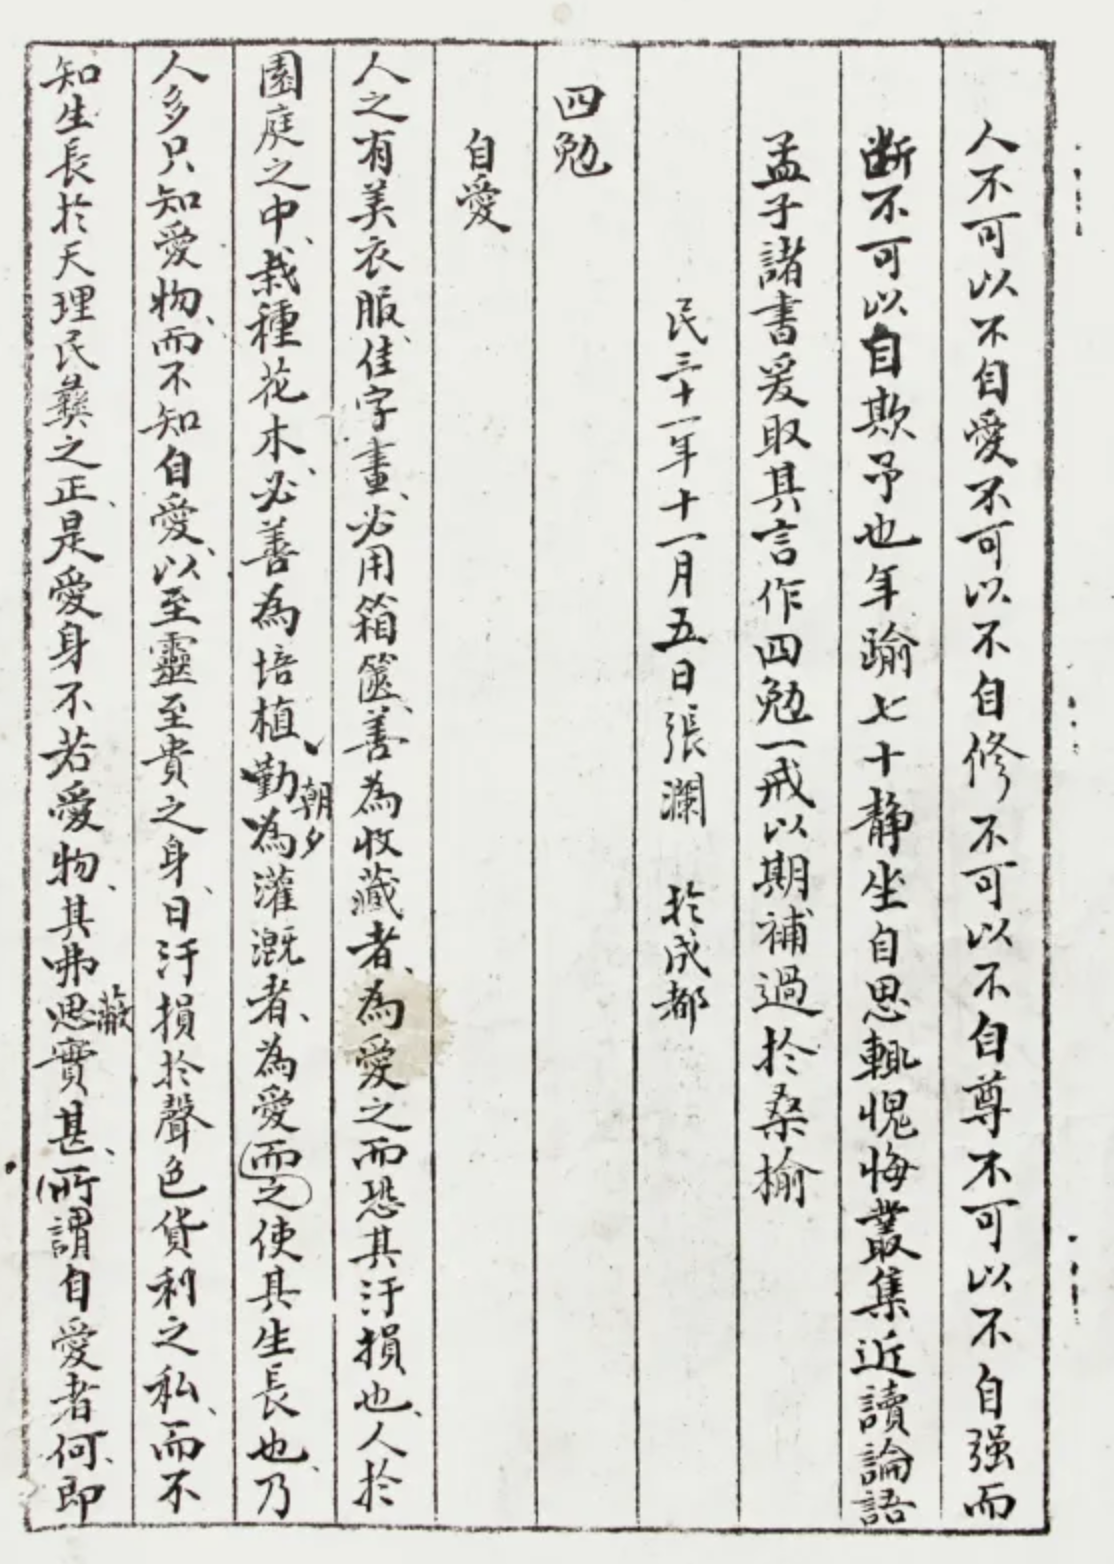 人不可以不自愛不可以不自修不可以不自尊不可以不自强而
断不可以自欺予也年踰七十静坐自思輒愧悔叢集近讀論語
孟子諸書爰取其言作四勉一戒以期補過於桑榆
民三十一年十一月五日張瀾 於成都
四勉
自愛
人之有美衣服、佳字畫、必用箱篋、善為收藏者、為愛之而恐其汙損也、人於
園庭之中、栽種花木、必善為培植、朝夕勤為灌溉者、為愛而之使其生長也、乃
人多只知愛物、而不知自愛、以至靈至貴之身、日汙損於聲色貨利之私、而不
知生長於天理民彝之正、是愛身不若愛物、其弗思蔽實甚、所謂自愛者何、即